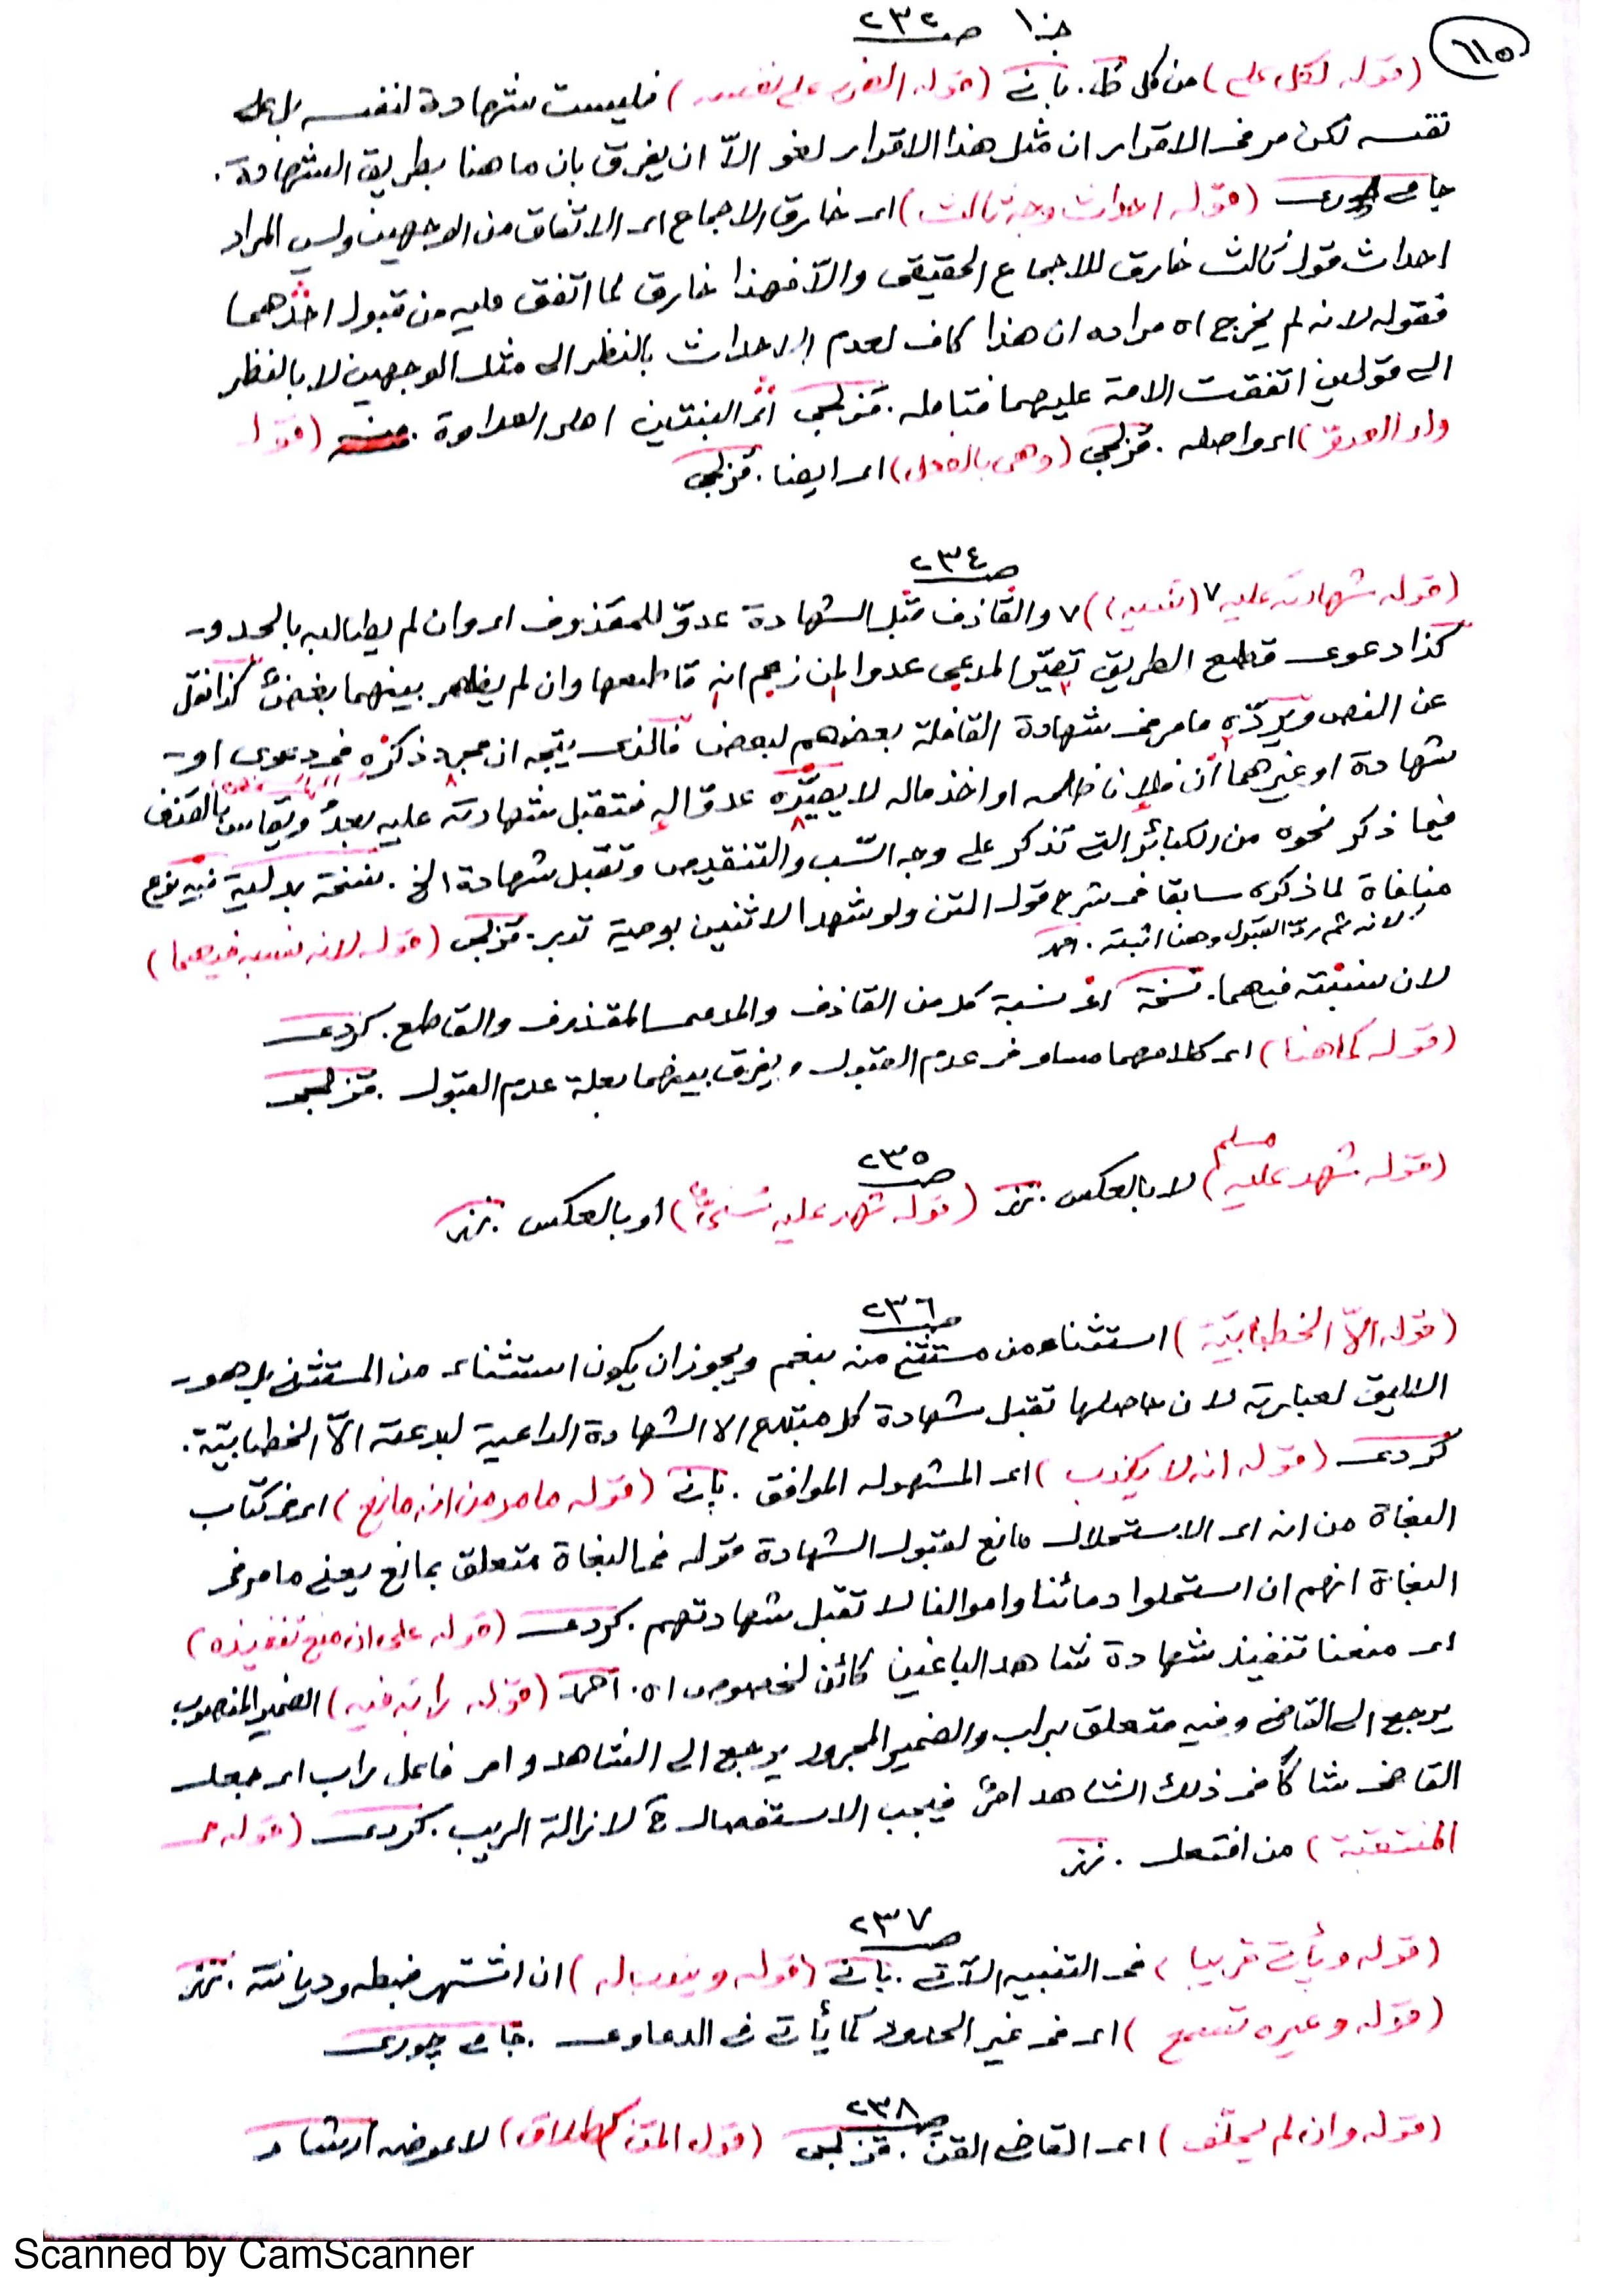 ٦١٥
جـ١٠ صـ ٢٣٢
(قوله لكل على) من كل ط. بانى (قوله الضرر على نفسه) فليست شهادة لنفسه بل على
نفسه لكن مر فى الاقرار ان مثل هذا الاقرار لغو الاّ ان يفرق بان ما هنا بطريق الشهادة.
جامى چورى (قوله احداث وجه ثالث) اى خارق الاجماع اى الاتفاق من الوجهين وليس المراد
احداث قول ثالث خارق للاجماع الحقيقى والاّ فهذا خارق لما اتفق عليه من قبول احدهما
فقوله لانه لم يخرج اه مراده ان هذا كاف لعدم الاحداث بالنظر الى مثل الوجهين لا بالنظر
الى قولين اتفقت الامة عليهما فتامله. قزلجى اى البنتين اهل العداوة. (قوله
ولد العدو) اى واصله. قزلجى (وهى بالعدل) اى ايضا. قزلجى
صـ ٢٣٤
(قوله شهادته عليه) ٧ (تنبيه) ٧ والقاذف قبل الشهادة عدوّ للمقذوف اى وان لم يطالبه بالحد و
كذا دعوى قطع الطريق تصيّر المدعى عدوا لمن زعم انه قاطعها وان لم يظهر بينهما بغض كذا نقل
عن النص ويردّه ما مر فى شهادة القافلة بعضهم لبعض فالذى يتجه ان مجرد ذكره فى دعوى او
شهادة او غيرهما ان فلانا ظلمه او اخذ ماله لا يصيّره عدوّا له فتقبل شهادته عليه بعدُ ويقاس بالقذف
فيما ذكر نحوه من الكبائر التى تذكر على وجه السّب والتنقيص وتقبل شهادة الخ. نسخة بدلية فيه نوع
منافاة لما ذكره سابقا فى شرح قول المتن ولو شهدا لاثنين بوصية تدبر. قزلجى (قوله لانه نسبه فيهما)
لانه ثم ردّ القبول وهنا اثبته. احمد
لان نسبته فيهما. نسخة اى نسبة كل من القاذف والمدعى المقذوف والقاطع. كردى
(قوله كما هنا) اى كلامهما مساو فى عدم القبول ويفرق بينهما بعلة عدم القبول. قزلجى
صـ ٢٣٥
(قوله شهد عليه مسلم) لا بالعكس. نزر (قوله شهد عليه) او بالعكس. نزر
صـ ٢٣٦
(قوله الاّ الخطابيّة) استثناء من مستثنى منه بنعم ويجوز ان يكون استثناء من المستثنى بل هو
الاليق لعبارته لان حاصلها تقبل شهادة كل مبتدع الا الشهادة الداعية لبدعته الاّ الخطابيّة.
كردى (قوله انه لا يكذب) اى المشهود له الموافق. بانى (قوله ما مر من انه مانع) اى فى كتاب
البغاة من انه اى الاستحلال مانع لقبول الشهادة قوله فى البغاة متعلق بمانع يعنى ما مر فى
البغاة انهم ان استحلوا دمائنا واموالنا لا تقبل شهادتهم. كردى (قوله على ان منع تنفيذه)
اى منعنا تنفيذ شهادة شاهد الباغين كائن لخصوص اه. احمد (قوله رابه فيه) الضمير المنصوب
يرجع الى القاضى وفيه متعلق براب والضمير المجرور يرجع الى الشاهد و امر فاعل راب اى جعل
القاضى شاكًا فى ذلك الشاهد امرٌ فيجب الاستفصال ح لازالة الريب. كردى (قوله
المنتقبة) من افتعل. نزر
صـ ٢٣٧
(قوله ويأتى قريبا) فى التنبيه الآتى. بانى (قوله ويندب له) ان اشتهر ضبطه وديانته. نزر
(قوله وغيره تسمع) اى فى غير الحدود كما يأتى فى الدعاوى. جامى چورى
صـ ٢٣٨
(قوله وان لم يحلّف) اى القاضى القن. قزلجى (قول المتن كطلاق) لا عوضه ارشاد
Scanned by CamScanner